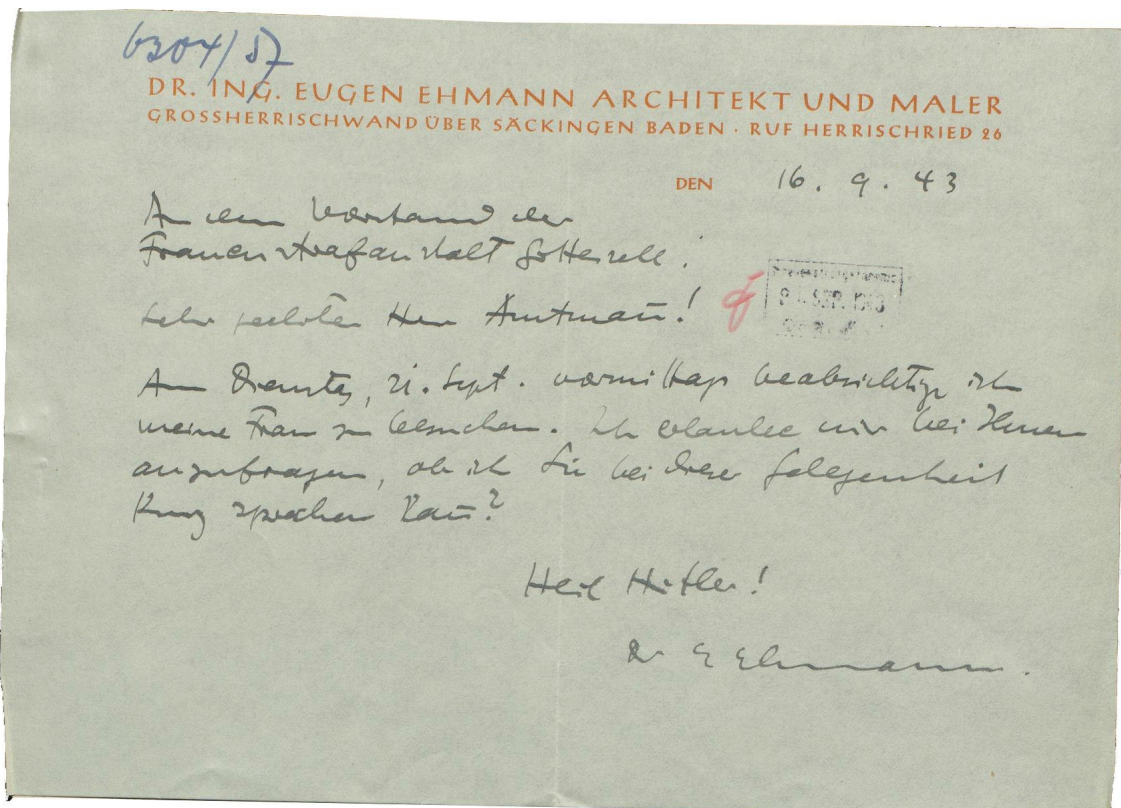 6304/57
DR. ING. EUGEN EHMANN ARCHITEKT UND MALER
GROSSHERRISCHWAND ÜBER SÄCKINGEN BADEN · RUF HERRISCHRIED 26
DEN 16. 9. 43
An den Vorstand der
Frauenstrafanstalt Gotteszell.
Sehr geehrter Herr Amtmann!
Am Dienstag, 21. Sept. vormittags beabsichtige ich
meine Frau zu besuchen. Ich erlaube mir bei Ihnen
anzufragen, ob ich Sie bei dieser Gelegenheit
kurz sprechen kann?
Heil Hitler!
Dr E Ehmann.